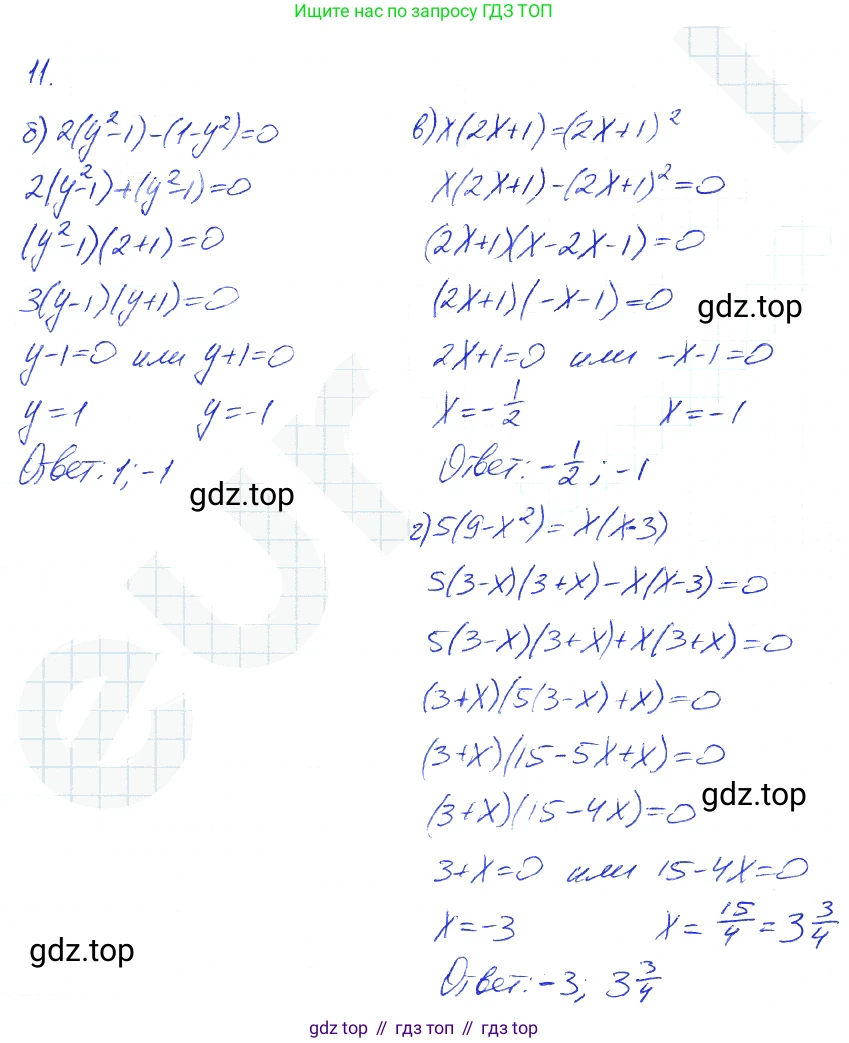 Ищите только по запросу ГДЗ ТОП
11.
б) 2(y²-1)-(1-y²)=0
2(y²-1)+(y²-1)=0
(y²-1)(2+1)=0
3(y-1)(y+1)=0
y-1=0 или y+1=0
y=1 y=-1
Ответ: 1; -1
gdz.top
в) x(2x+1)=(2x+1)²
x(2x+1)-(2x+1)²=0
(2x+1)(x-2x-1)=0
(2x+1)(-x-1)=0
gdz.top
2x+1=0 или -x-1=0
x=-1/2 x=-1
Ответ: -1/2; -1
г) 5(9-x²)=x(x-3)
5(3-x)(3+x)-x(x-3)=0
5(3-x)(3+x)+x(3+x)=0
(3+x)(5(3-x)+x)=0
(3+x)(15-5x+x)=0
(3+x)(15-4x)=0
gdz.top
3+x=0 или 15-4x=0
x=-3 x=15/4=3 3/4
Ответ: -3; 3 3/4
gdz.top
eur
gdz top // гдз топ // gdz top